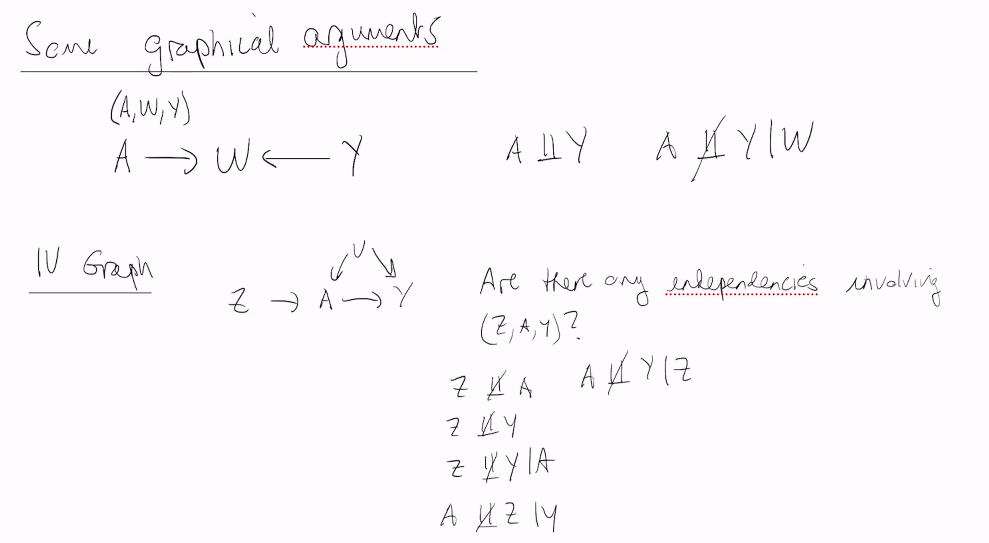 Some graphical arguments
(A,W,Y)
A → W ← Y A ⫫ Y A ⫫̸ Y | W
IV Graph
U
Z → A → Y
Are there any independencies involving
(Z, A, Y)?
Z ⫫̸ A A ⫫̸ Y | Z
Z ⫫̸ Y
Z ⫫̸ Y | A
A ⫫̸ Z | Y